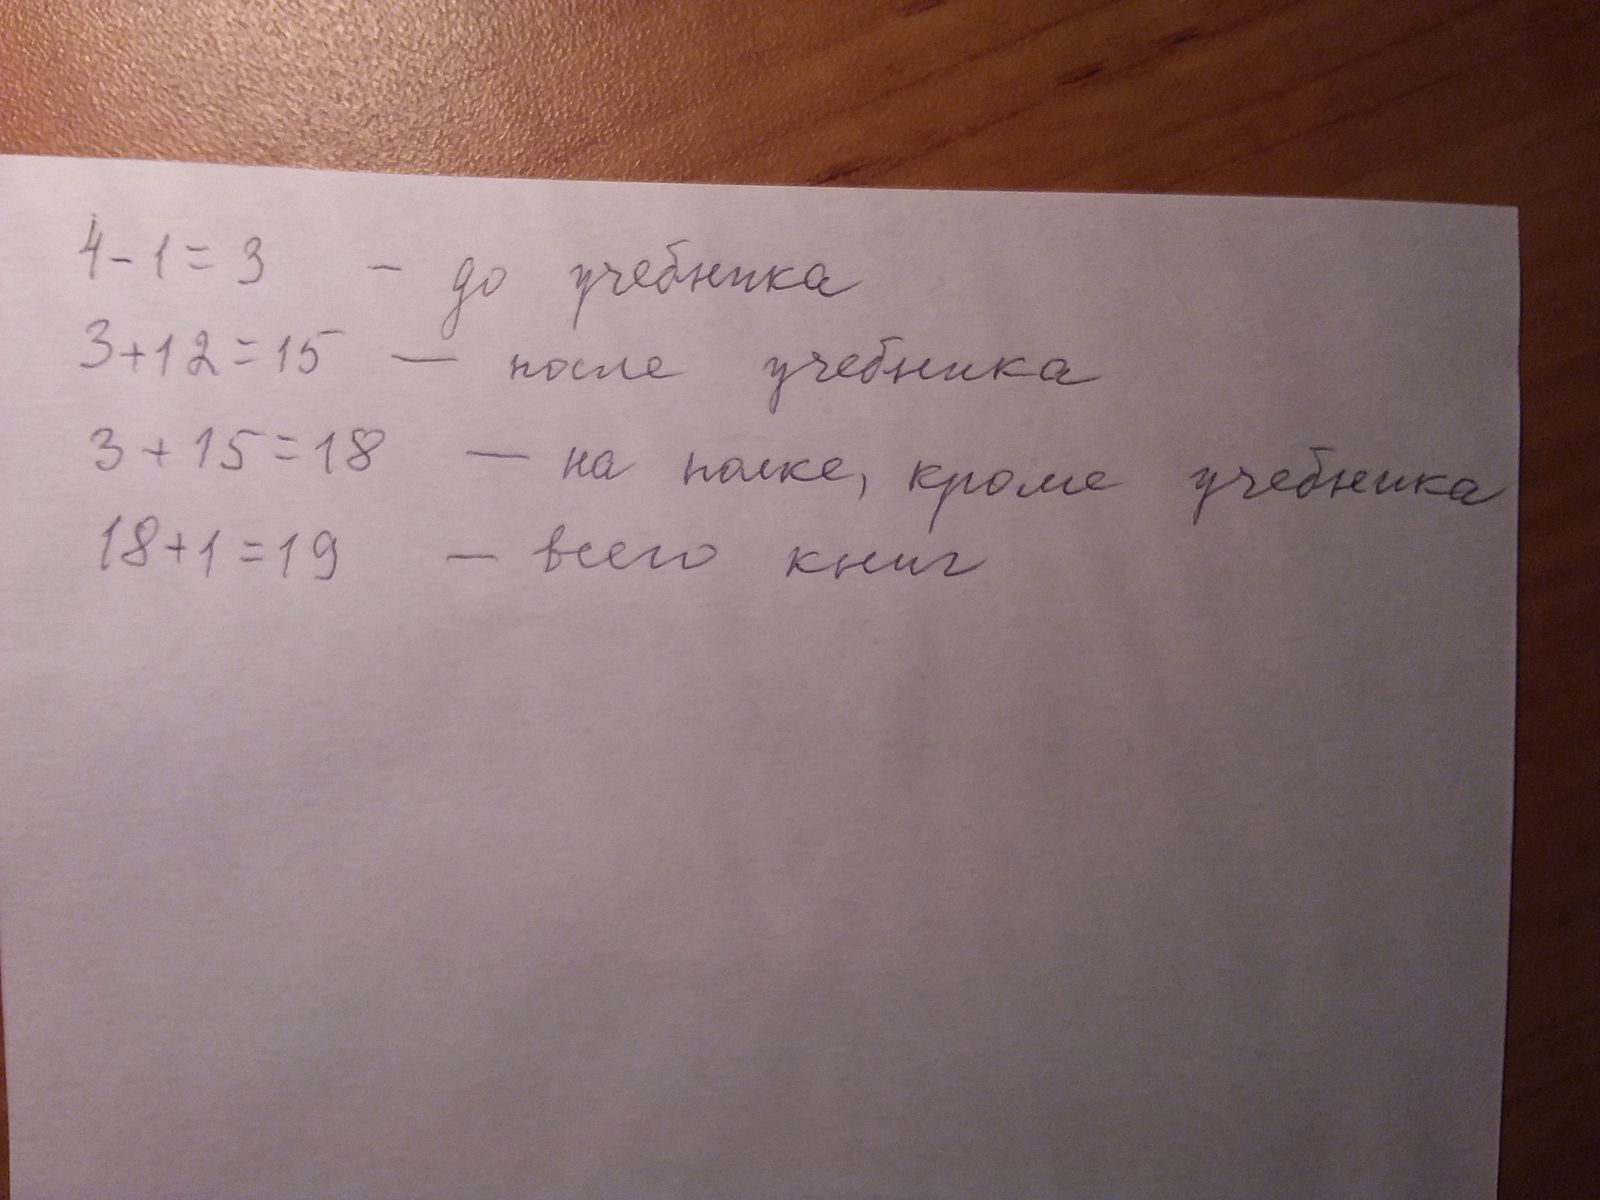 4-1=3 - до учебника
3+12=15 — после учебника
3+15=18 — на полке, кроме учебника
18+1=19 — всего книг